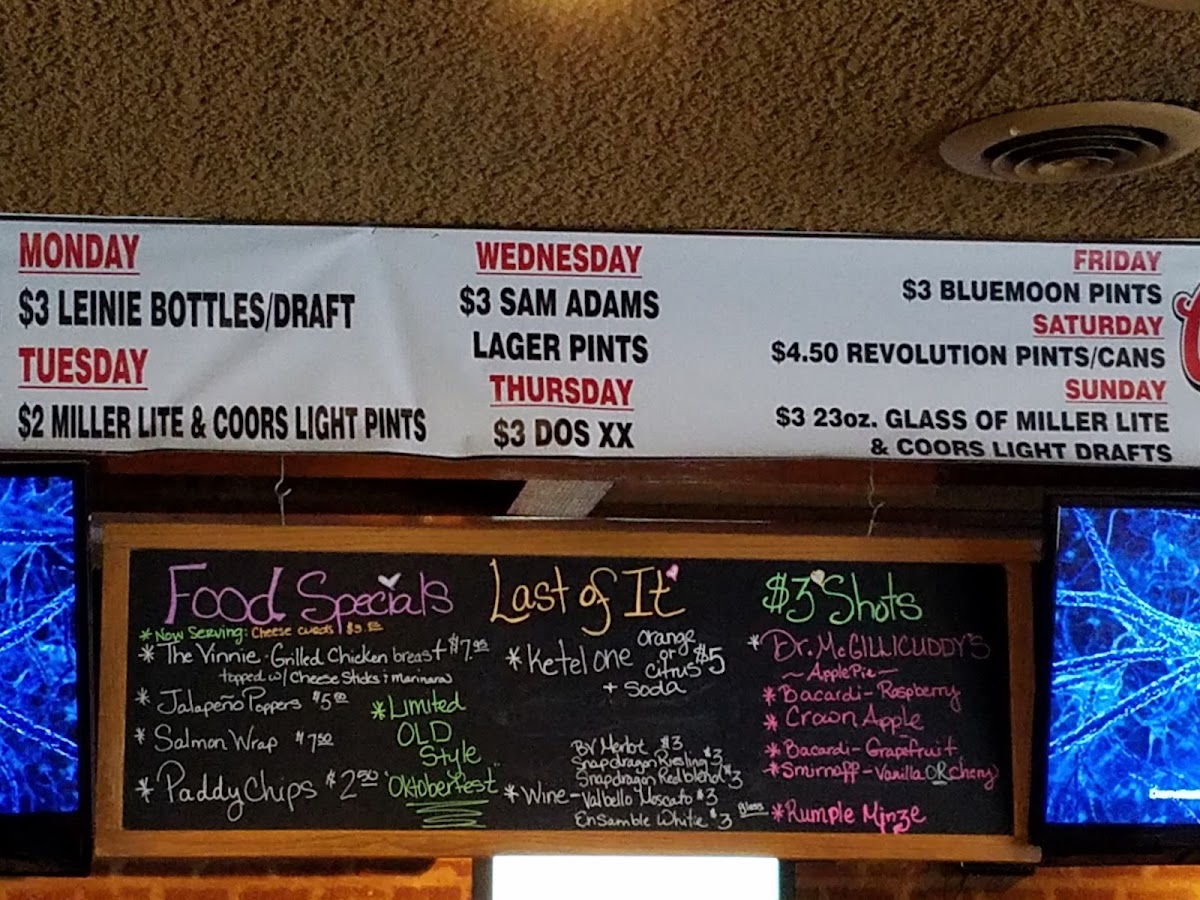 MONDAY
$3 LEINIE BOTTLES/DRAFT
TUESDAY
$2 MILLER LITE & COORS LIGHT PINTS
WEDNESDAY
$3 SAM ADAMS
LAGER PINTS
THURSDAY
$3 DOS XX
FRIDAY
$3 BLUEMOON PINTS
SATURDAY
$4.50 REVOLUTION PINTS/CANS
SUNDAY
$3 23oz. GLASS OF MILLER LITE
& COORS LIGHT DRAFTS
Food Specials
* Now Serving: Cheese curds
* The Vinnie - Grilled Chicken breast $7.95
topped w/ Cheese Sticks & marinara
* Jalapeño Poppers $5.00
* Salmon Wrap $7.50
* Paddy Chips $2.50
* Limited
OLD
Style
"Oktoberfest"
Last of It
* Ketel one orange or citrus $5
+ soda
BV Merlot $3
Snapdragon Riesling $3
Snapdragon Red blend $3
* Wine - Valbello Moscato $3
Ensamble White $3
$3 Shots
* Dr. McGILLICUDDY'S
~ Apple Pie ~
* Bacardi - Raspberry
* Crown Apple
* Bacardi - Grapefruit
* Smirnoff - Vanilla OR cherry
* Rumple Minze